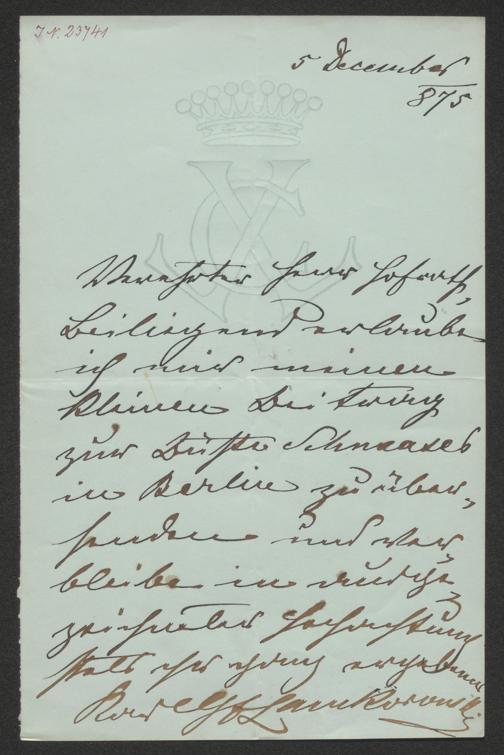 J.N. 23741
5 December
875
Verehrter Herr Hofrath,
Beiliegend erlaube
ich mir meinen
kleinen Beitrag
zur Büste Schnaases
in Berlin zu über-
senden und ver-
bleibe in ausge-
zeichneter Hochachtung
stets ihr ganz ergebener
Karl Gf Lanckoronski